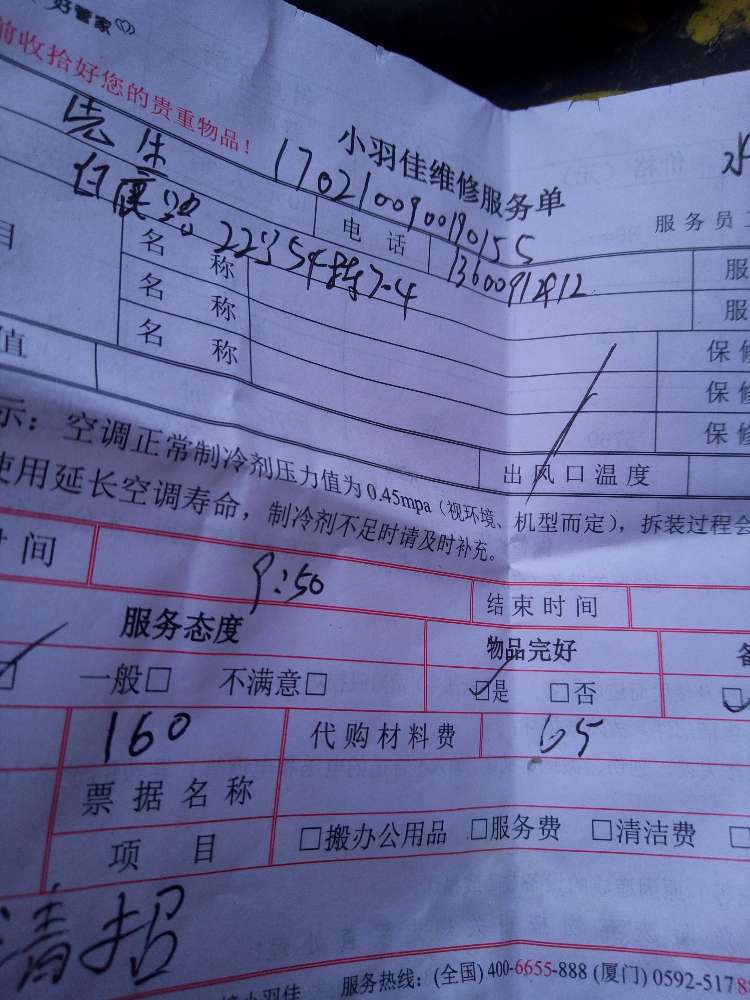 好管家
前收拾好您的贵重物品！
小羽佳维修服务单
水
先生
1702100900190155
电话
服务员
白鹭路22号54栋704
13600912812
目
名称
服
名称
服
名称
保修
值
保修
保修
出风口温度
示：空调正常制冷剂压力值为0.45mpa（视环境、机型而定），拆装过程会
使用延长空调寿命，制冷剂不足时请及时补充。
时间
9:50
结束时间
服务态度
物品完好
备
一般□ 不满意□
☑是 □否
160
代购材料费
65
票据名称
项目
□搬办公用品 □服务费 □清洁费
清招
小羽佳 服务热线：(全国) 400-6655-888 (厦门) 0592-5178